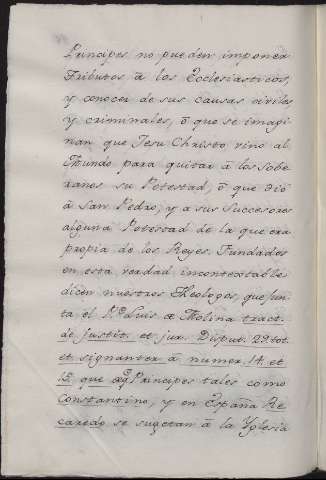 Principes no pueden imponer
Tributos â los Ecclesiasticos,
y conocer de sus causas civiles
y criminales, ô que se imagi
nan que Jesu Christo vino al
Mundo para quitar â los Sobe
ranos su Potestad, ô que diô
â San Pedro, y a sus Successores
alguna Potestad de la que era
propia de los Reyes. Fundados
en esta verdad incontestable
dicen nuestros Theologos, que jun
ta el P. Luis de Molina tract.
de justit. et jur. Disput. 29. tot.
et signanter â numer. 14. et
15. que Principes tales como
Constantino, y en España Re
caredo se sugetan â la Yglesia